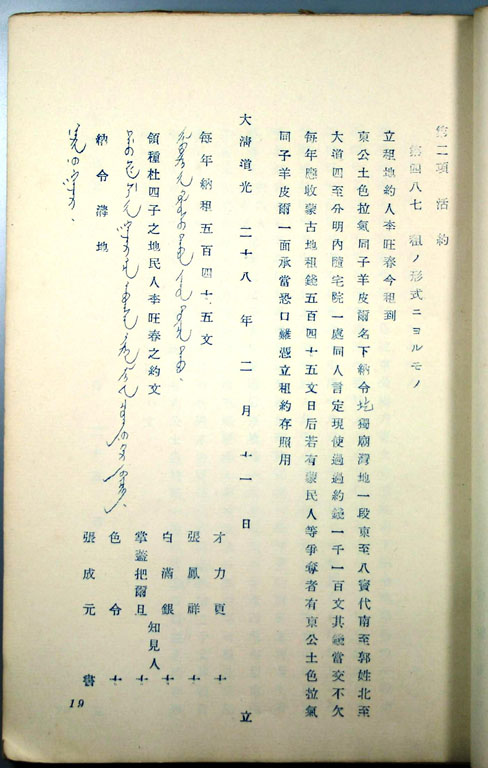 第二項 活約
第四八七 租ノ形式ニヨルモノ
立租地約人李旺春今租到
東公土色拉氣同子羊皮爾名下納令圪獨廟灣地一段東至八賓代南至郭姓北至
大道四至分明內隨宅院一處同人言定現使過過約錢一千一百文其錢當交不欠
每年應收蒙古地租錢五百四十五文日后若有蒙民人等爭奪者有東公土色拉氣
同子羊皮爾一面承當恐口難憑立租約存照用
大淸道光 二十八年 二月 十一日 立
每年納租五百四十五文
領種杜四子之地民人李旺春之約文
納令溝地
才力更 十
張鳳祥 十
白滿銀 十
掌蓋把爾旦 知見人 十
色令 十
張成元 書
19